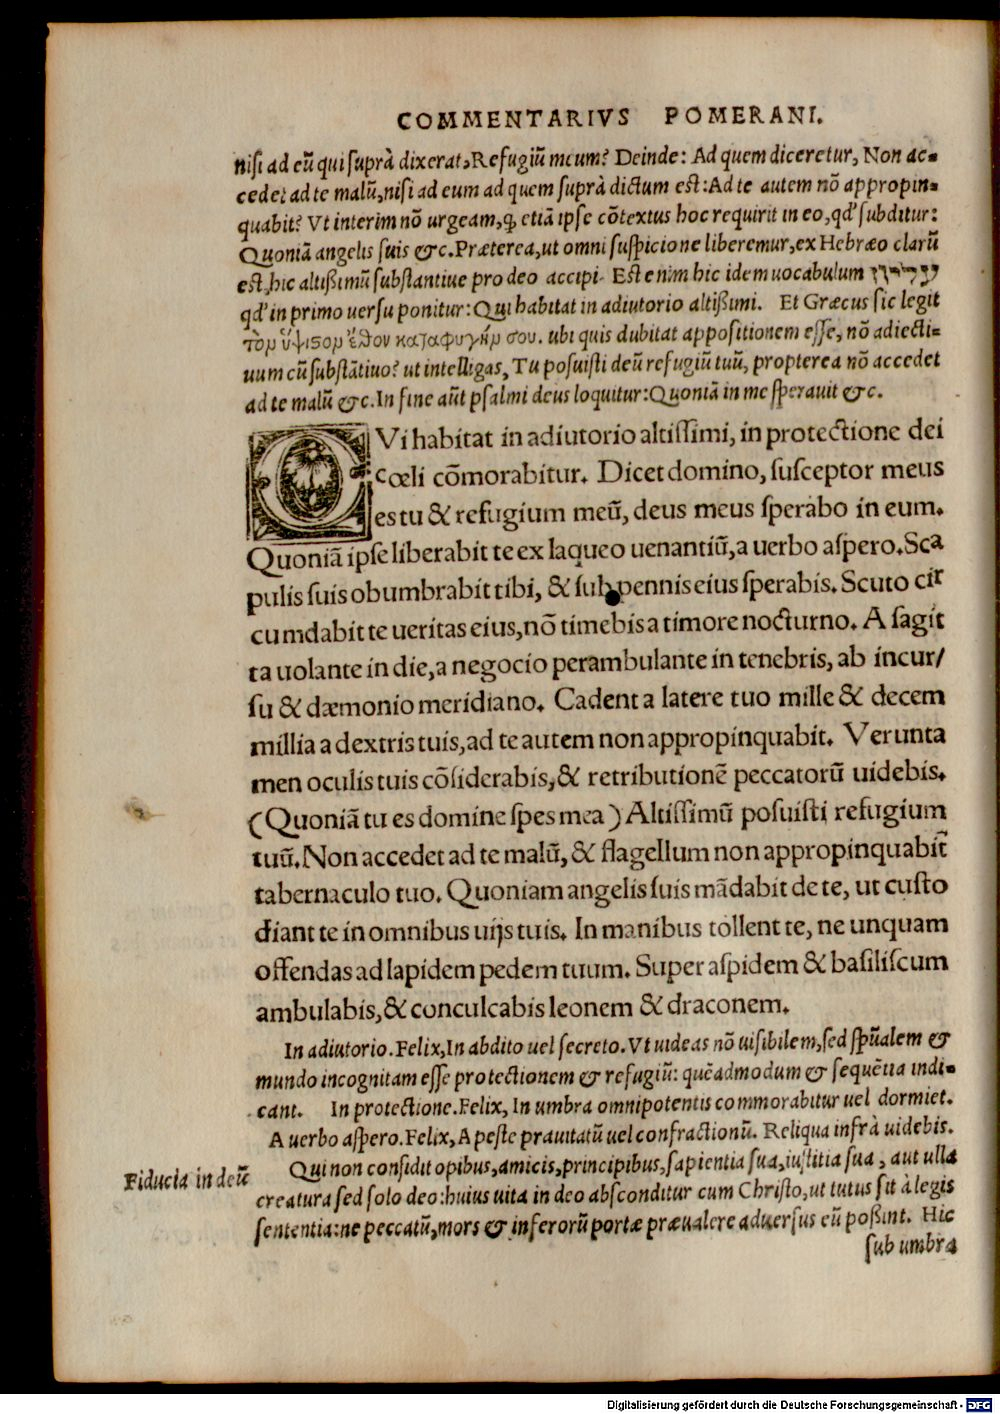 COMMENTARIVS POMERANI.
nisi ad eũ qui suprà dixerat, Refugiũ meum? Deinde: Ad quem diceretur, Non ac-
cedet ad te malũ, nisi ad eum ad quem suprà dictum est: Ad te autem nõ appropin-
quabit? Vt interim nõ urgeam, ꝙ etiã ipse cõtextus hoc requirit in eo, qd' subditur:
Quoniã angelis suis &c. Præterea, ut omni suspicione liberemur, ex Hebræo clarũ
est, hic altißimũ substantiue pro deo accipi. Est enim hic idem uocabulum עליון
qd' in primo uersu ponitur: Qui habitat in adiutorio altißimi. Et Græcus sic legit
τὸν ὕψισον ἔθου καταφυγήν σου. ubi quis dubitat appositionem esse, nõ adiecti-
uum cũ substãtiuo? ut intelligas, Tu posuisti deũ refugiũ tuũ, propterea nõ accedet
ad te malũ &c. In fine aũt psalmi deus loquitur: Quoniã in me sperauit &c.
QVi habitat in adiutorio altissimi, in protectione dei
cœli cõmorabitur. Dicet domino, susceptor meus
es tu & refugium meũ, deus meus sperabo in eum.
Quoniã ipse liberabit te ex laqueo uenantiũ, a uerbo aspero. Sca
pulis suis obumbrabit tibi, & sub pennis eius sperabis. Scuto cir
cumdabit te ueritas eius, nõ timebis a timore nocturno. A sagit
ta uolante in die, a negocio perambulante in tenebris, ab incur/
su & dæmonio meridiano. Cadent a latere tuo mille & decem
millia a dextris tuis, ad te autem non appropinquabit. Verunta
men oculis tuis cõsiderabis, & retributionẽ peccatorũ uidebis.
(Quoniã tu es domine spes mea) Altissimũ posuisti refugium
tuũ. Non accedet ad te malũ, & flagellum non appropinquabit̃
tabernaculo tuo. Quoniam angelis suis mãdabit de te, ut custo
diant te in omnibus uijs tuis. In manibus tollent te, ne unquam
offendas ad lapidem pedem tuum. Super aspidem & basiliscum
ambulabis, & conculcabis leonem & draconem.
In adiutorio. Felix, In abdito uel secreto. Vt uideas nõ uisibilem, sed spũalem &
mundo incognitam esse protectionem & refugiũ: quẽadmodum & sequẽtia indi-
cant. In protectione. Felix, In umbra omnipotentis commorabitur uel dormiet.
A uerbo aspero. Felix, A peste prauitatũ uel confractionũ. Reliqua infrà uidebis.
Fiducia in deũ
Qui non confidit opibus, amicis, principibus, sapientia sua, iustitia sua, aut ulla
creatura sed solo deo: huius uita in deo absconditur cum Christo, ut tutus sit à legis
sententia: ne peccatũ, mors & inferorũ portæ præualere aduersus eũ poßint. Hic
sub umbra
Digitalisierung gefördert durch die Deutsche Forschungsgemeinschaft - DFG